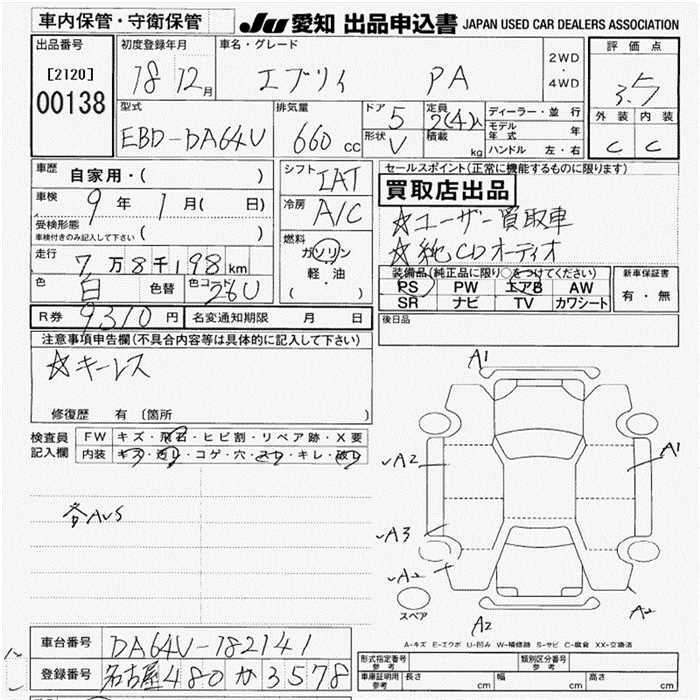 車内保管・守衛保管 JU 愛知 出品申込書 JAPAN USED CAR DEALERS ASSOCIATION
出品番号 初度登録年月 車名・グレード 2WD・4WD 評価点
[2120] 18 12月 エブリィ PA 3.5
00138
型式 排気量 ドア 5 定員 2(4)人 ディーラー・並行 外装 内装
EBD-DA64V 660cc 形状 V 積載 kg モデル年式 年 C C
ハンドル 左・右
車歴 自家用・( ) シフト IAT セールスポイント(正常に機能するものに限ります)
車検 9年 1月( 日) 冷房 A/C 買取店出品
受検形態 ( ) ☆ユーザー買取車
車検付きのみ記入して下さい
燃料 ☆純CDオーディオ
走行 7万8千198km ガソリン
軽・油
( )
装備品(純正品に限り○をつけてください) 新車保証書
色 白 色替 色コード 26U PS PW エアB AW 有・無
SR ナビ TV カワシート
R券 9310円 名変通知期限 月 日 後日品
注意事項申告欄(不具合内容等は具体的に記入して下さい)
☆キーレス
修復歴 有〔箇所 〕
検査員記入欄 FW キズ・飛石・ヒビ割・リペア跡・X要
内装 キズ・汚レ・コゲ・穴・スレ・キレ・破レ
A1
A2 A1
各AUS
A3
A2 A2
スペア
A2
A-キズ E-エクボ U-凹み W-補修跡 S-サビ C-腐食 XX-交換済
車台番号 DA64V-182141
登録番号 名古屋 480 か 3578
形式指定番号 参考 類別区分番号 参考
車庫証明用 参考 長さ cm 幅 cm 高さ cm